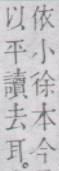 依小徐本今
以平讀去耳。